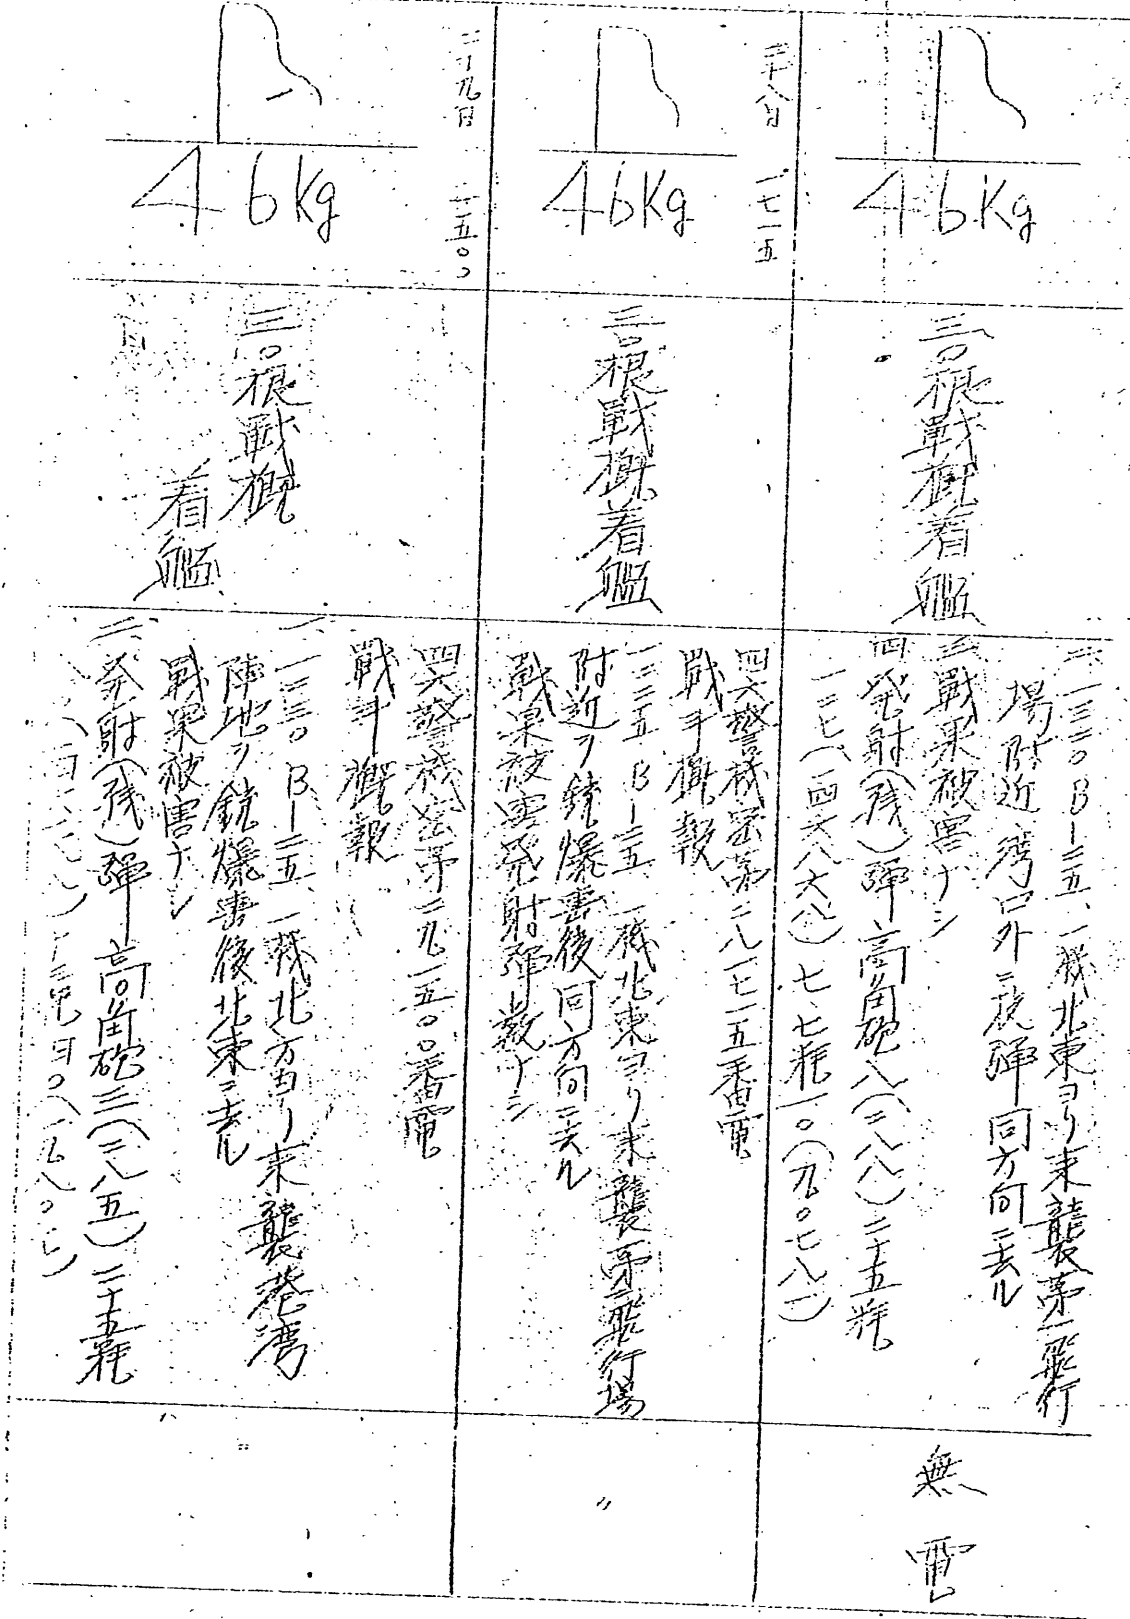 46Kg
三〇根戰概着艦
二、一三三〇B-二五、一機北東ヨリ来襲第一飛行
場附近湾口外ニ投弾同方向ニ去ル
三、戰果被害ナシ
四、発射(残)弾高角砲八(二八八)二十五粍
一三七(四六八六八)七、七粍一〇(九〇七八一)
無電
二十八日 一七一五
46Kg
三〇根戰概着艦
四六警機密第二八一七一五番電
戰斗概報
一三二五B-二五、一機北東ヨリ来襲第一飛行場
附近ヲ銃爆撃後同方向ニ去ル
戰果被害発射弾数ナシ
〃
二十九日 一五〇〇
46Kg
三〇根戰概
着艦
四六警機密第二九一五〇〇番電
戰斗概報
一、一三三〇B-二五、一機北方ヨリ来襲港湾
陣地ヲ銃爆撃後北東ニ去ル
戰果被害ナシ
二、発射(残)弾高角砲三(二八五)二十五粍
〃